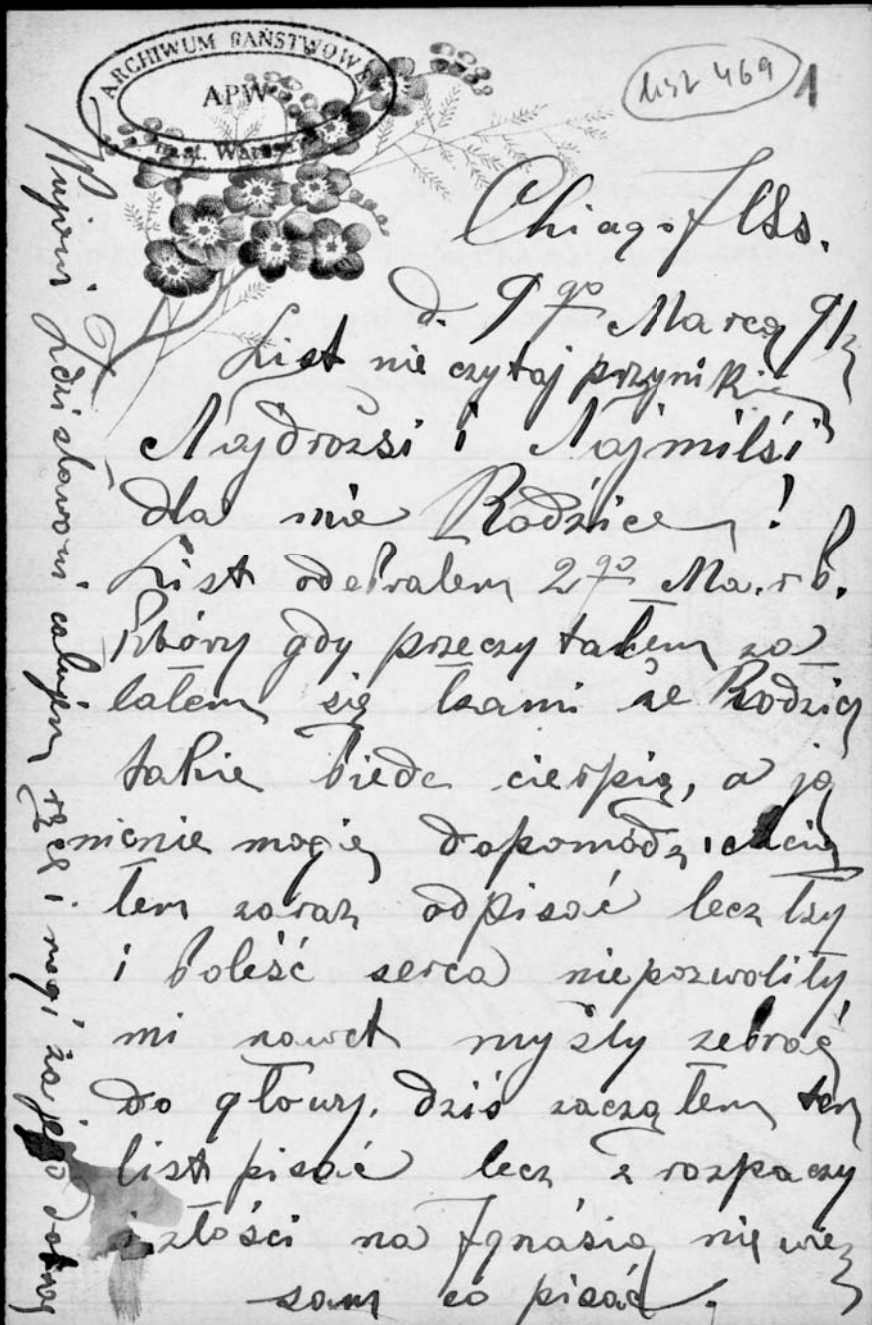 ARCHIWUM PAŃSTWOWE
APW
m.st. Warszawy
list 469
1
Chiago Ills.
d. 9go Marca 91
List nie czytaj przy
Najdrozsi i Najmilśi
dla mie Rodzice!
List odebralem 2go Ma. r b.
Który gdy przeczytałem za
lałem się łzami że Rodzicy
takie biede cierpią, a ja
nicnie mogię dopomódz, chcia
łem zaraz odpisać lecz łzy
i boleść serca niepozwoliły
mi nawet myśly zebrać
do głowy. dziś zaczątem ten
list pisać lecz z rozpaczy
i złości na Ignasia nie wiem
sam co pisać.
Wujowi Zdzisławowi całujem ręce i nogi za jego dobroć